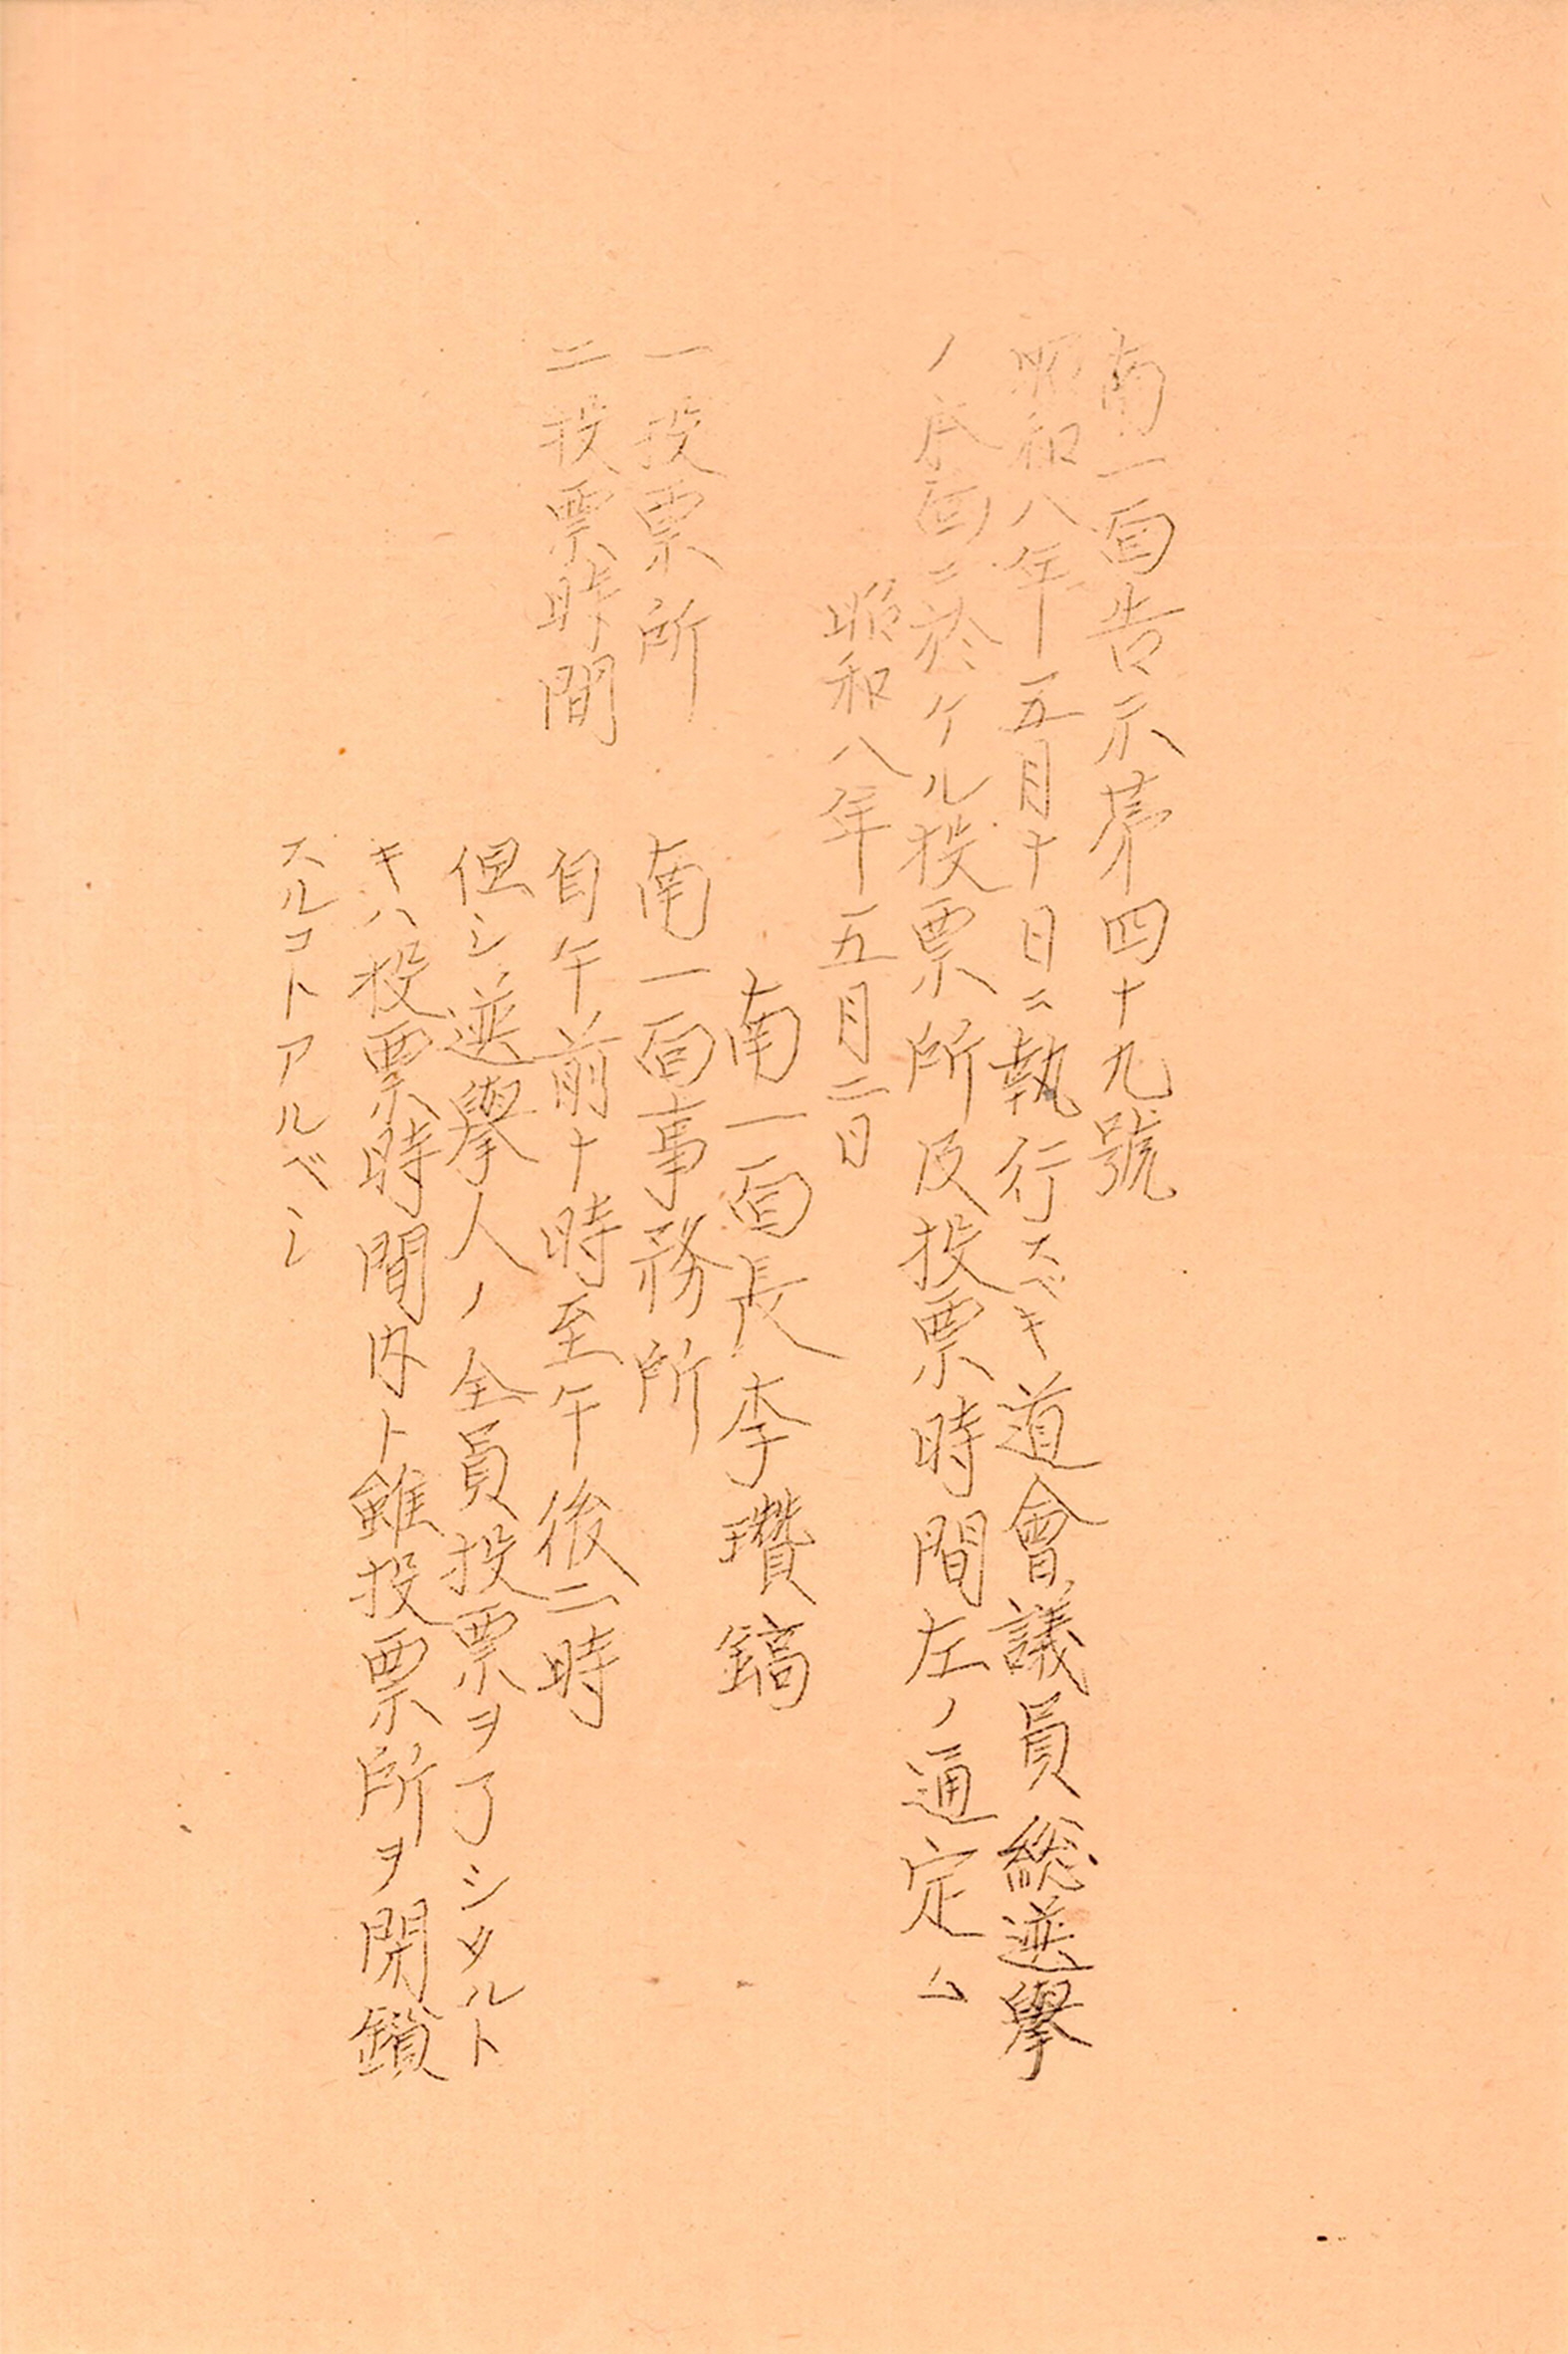 南一面告示第四十九號
昭和八年五月十日ニ執行スベキ道會議員総選擧
ノ本面ニ於ケル投票所及投票時間左ノ通定ム
昭和八年五月二日
南一面長李瓚鎬
一投票所　南一面事務所
二投票時間　自午前十時至午後二時
但シ選擧人ノ全員投票ヲ了シタルト
キハ投票時間内ト雖投票所ヲ閉鎖
スルコトアルベシ